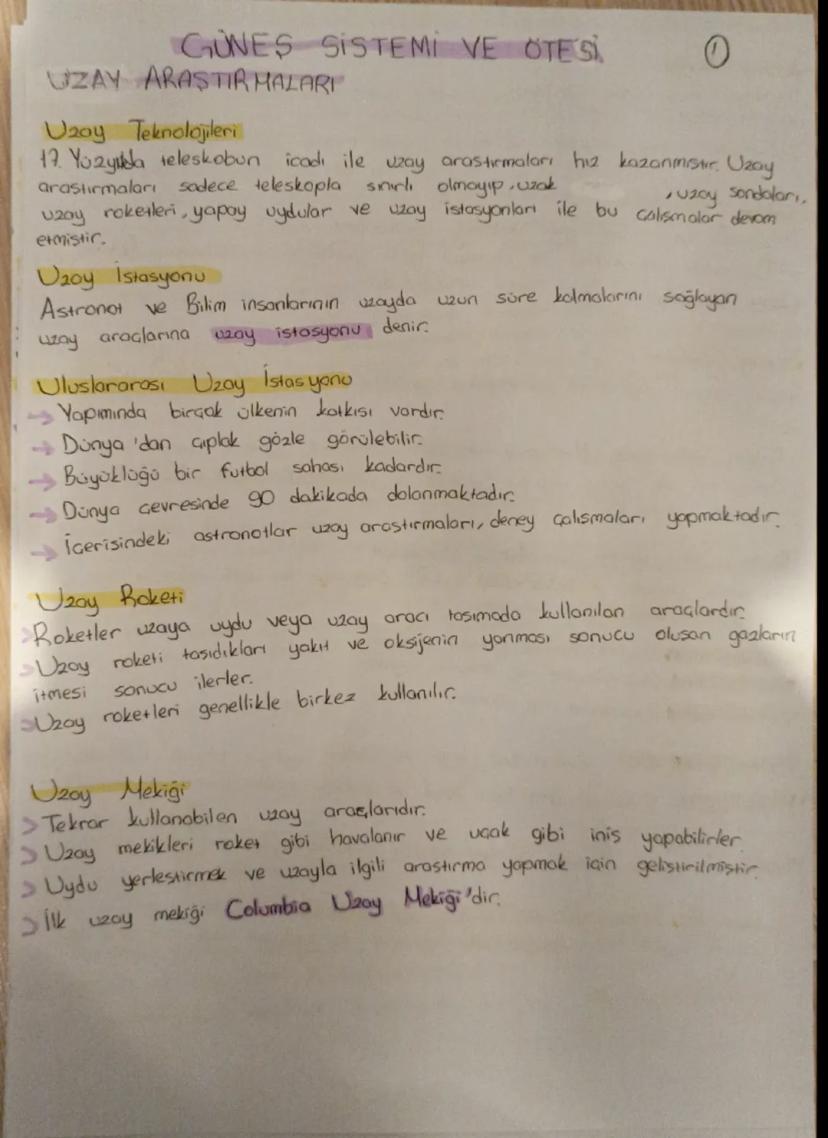 GÜNEŞ SİSTEMİ VE ÖTESİ
1
UZAY ARAŞTIRMALARI
Uzay Teknolojileri
17. Yüzyılda teleskobun icadı ile uzay araştırmaları hız kazanmıştır. Uzay
araştırmaları sadece teleskopla sınırlı olmayıp, uzak , uzay sondaları,
uzay roketleri, yapay uydular ve uzay istasyonları ile bu çalışmalar devam
etmiştir.
Uzay İstasyonu
Astronot ve Bilim insanlarının uzayda uzun süre kalmalarını sağlayan
uzay araçlarına uzay istasyonu denir.
Uluslararası Uzay İstasyonu
→ Yapımında birçok ülkenin katkısı vardır.
→ Dünya'dan çıplak gözle görülebilir.
→ Büyüklüğü bir futbol sahası kadardır.
→ Dünya çevresinde 90 dakikada dolanmaktadır.
→ İçerisindeki astronotlar uzay araştırmaları, deney çalışmaları yapmaktadır.
Uzay Roketi
> Roketler uzaya uydu veya uzay aracı taşımada kullanılan araçlardır.
> Uzay roketi taşıdıkları yakıt ve oksijenin yanması sonucu oluşan gazların
itmesi sonucu ilerler.
> Uzay roketleri genellikle birkez kullanılır.
Uzay Mekiği
> Tekrar kullanabilen uzay araçlarıdır.
> Uzay mekikleri roket gibi havalanır ve uçak gibi iniş yapabilirler.
> Uydu yerleştirmek ve uzayla ilgili araştırma yapmak için geliştirilmiştir.
> İlk uzay mekiği Columbia Uzay Mekiği'dir.